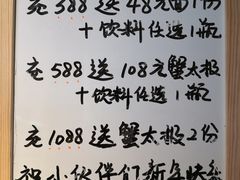 充388送48元面1份
+饮料任选1瓶
充588送108元蟹太极
+饮料任选1瓶
充1088送蟹太极2份
祝小伙伴们新年快乐